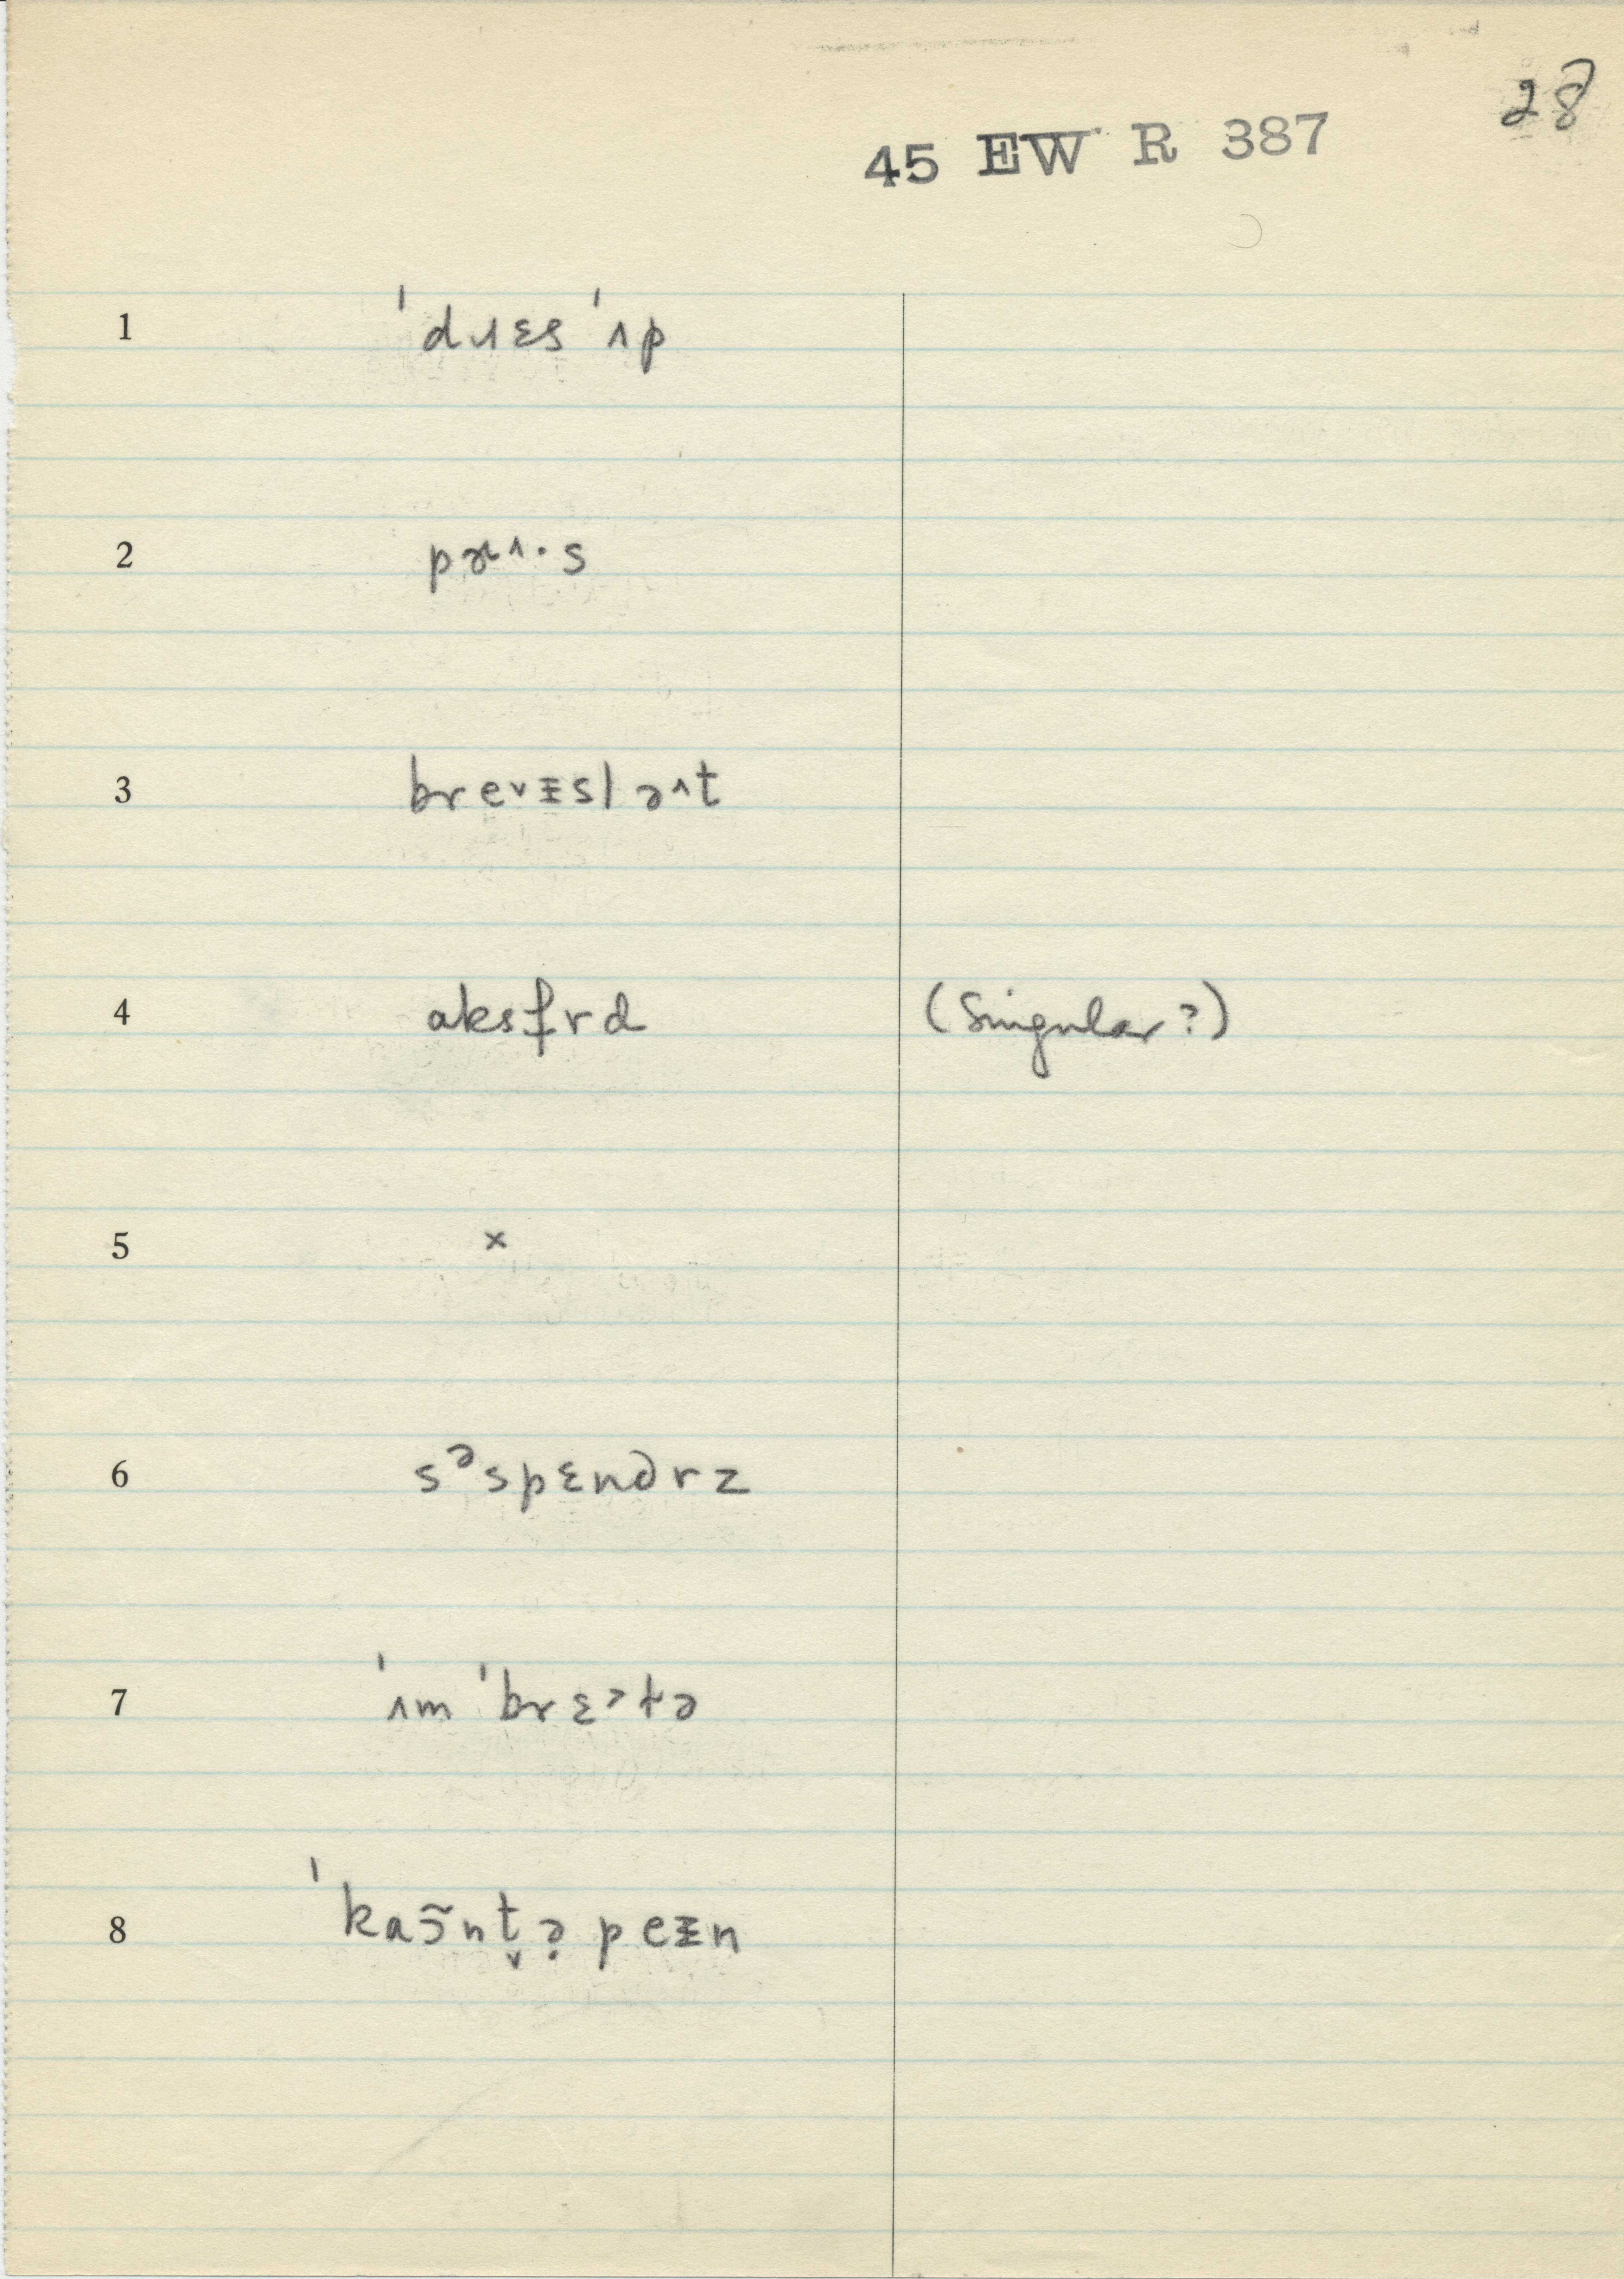 28
45 EW R 387
1 ˈdɹɛs ˈʌp
2 pɚʌ·s
3 brevɪslə^t
4 aksfrd (Singular?)
5 ×
6 sᵊspɛndrz
7 ˈʌmˈbrɛ˒tə
8 ˈkaɔ̃nt̬ə̣ peɪn